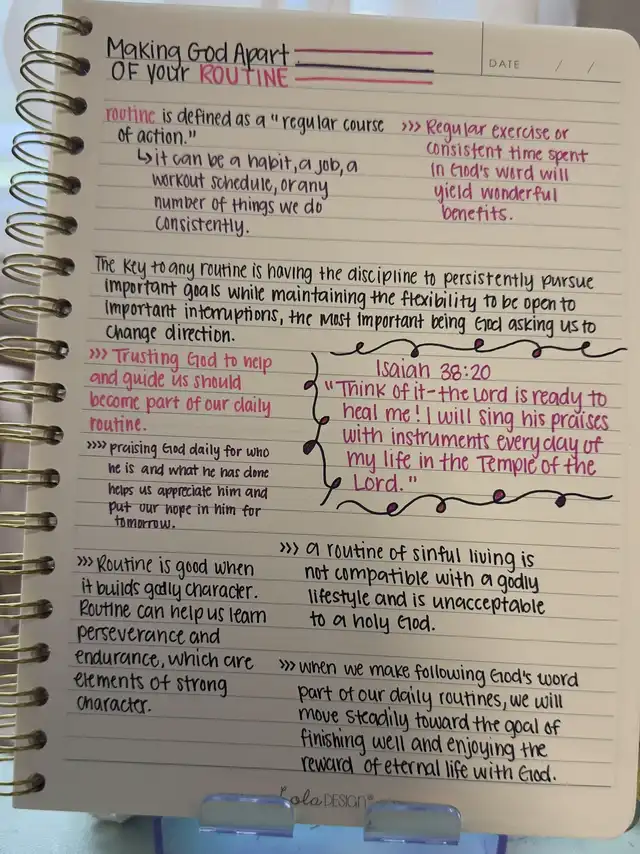 Making God Apart
OF your ROUTINE
DATE / /
routine is defined as a "regular course
of action."
↳it can be a habit, a job, a
workout schedule, or any
number of things we do
consistently.
>>> Regular exercise or
consistent time spent
in God's word will
yield wonderful
benefits.
The key to any routine is having the discipline to persistently pursue
important goals while maintaining the flexibility to be open to
important interruptions, the most important being God asking us to
change direction.
>>> Trusting God to help
and guide us should
become part of our daily
routine.
>>>> praising God daily for who
he is and what he has done
helps us appreciate him and
put our hope in him for
tomorrow.
Isaiah 38:20
"Think of it-the Lord is ready to
heal me! I will sing his praises
with instruments every day of
my life in the Temple of the
Lord."
>>> Routine is good when
it builds godly character.
Routine can help us learn
perseverance and
endurance, which are
elements of strong
character.
>>> a routine of sinful living is
not compatible with a godly
lifestyle and is unacceptable
to a holy God.
>>> when we make following God's word
part of our daily routines, we will
move steadily toward the goal of
finishing well and enjoying the
reward of eternal life with God.
Lola DESIGN